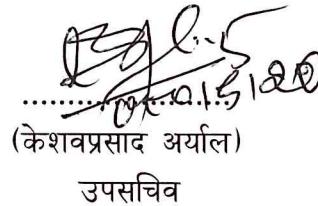 ....................
(केशवप्रसाद अर्याल)
उपसचिव